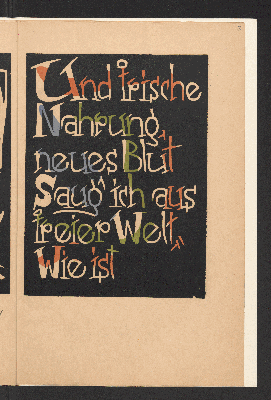 Und frische
Nahrung,
neues Blut
Saug' ich aus
freier Welt,
Wie ist